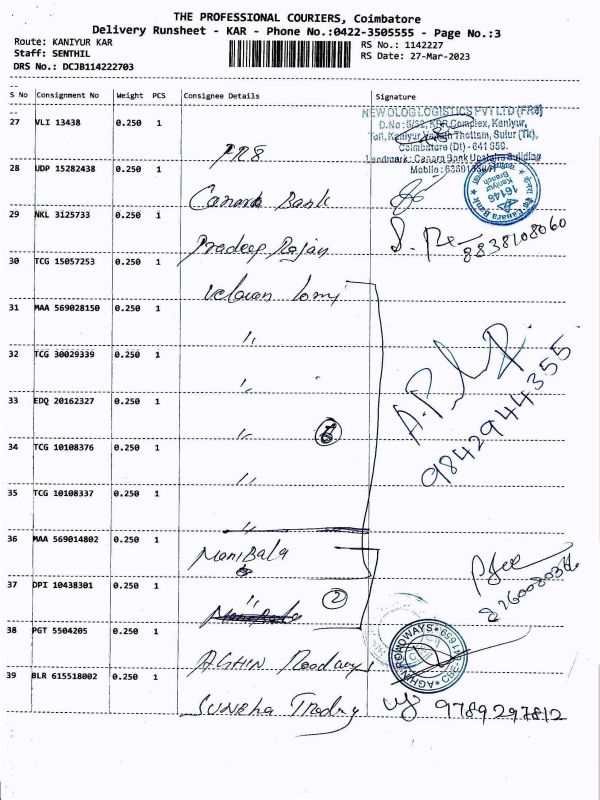 THE PROFESSIONAL COURIERS, Coimbatore
Delivery Runsheet - KAR - Phone No.:0422-3505555 - Page No.:3
Route: KANIYUR KAR
RS No.: 1142227
Staff: SENTHIL
RS Date: 27-Mar-2023
DRS No.: DCJB114222703
S No Consignment No Weight PCS Consignee Details Signature
NEW OLOG LOGISTICS PVT LTD (FR8)
27 VLI 13438 0.250 1 FR8
D.No : 5/32, KPR Complex, Kaniyur,
Toll, Kaniyur Thottam, Sulur (Tk),
Coimbatore (Dt) - 641 659.
Landmark : Canara Bank Upstairs Building
Mobile :
28 UDP 15282438 0.250 1 Canara Bank
Canara Bank
16146
Kaniyur
Branch
29 NKL 3125733 0.250 1 Pradeep Rajan
8838108060
30 TCG 15057253 0.250 1
31 MAA 569028150 0.250 1 "
32 TCG 30029339 0.250 1 "
33 EDQ 20162327 0.250 1 "
34 TCG 10108376 0.250 1 "
35 TCG 10108337 0.250 1 "
9842944355
36 MAA 569014802 0.250 1 Manibala
37 DPI 10438301 0.250 1 "
2
38 PGT 5504205 0.250 1 AGHIN Roadways
AGHIN ROADWAYS
39 BLR 615518002 0.250 1 SUNEHA Trading
9789297812